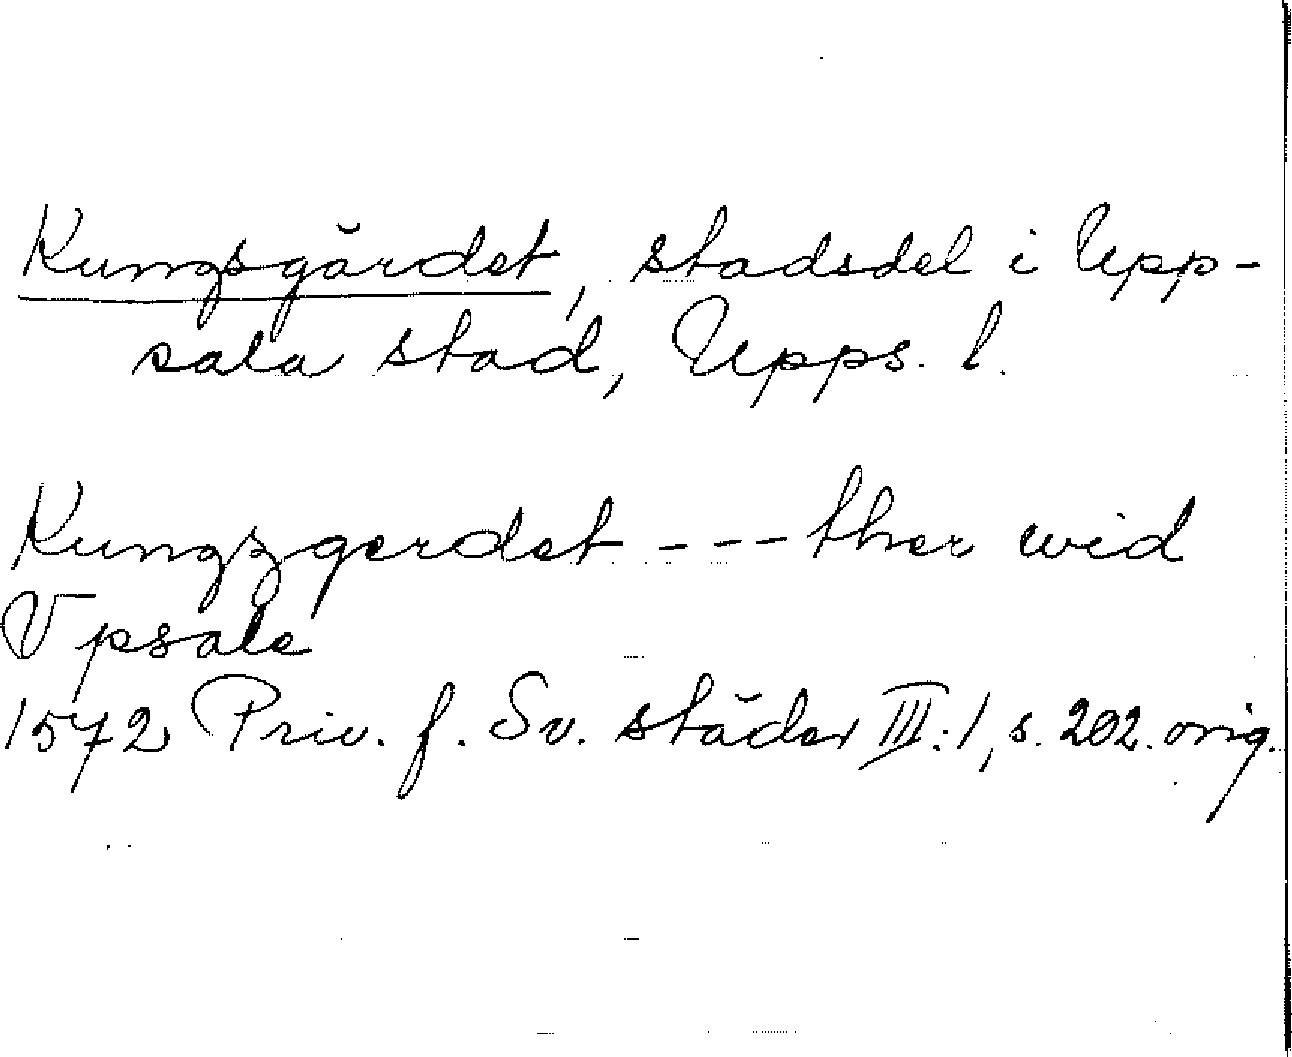 Kungsgärdet, stadsdel i Upp-
sala stad, Upps. l.
Kungzgerdet --- ther wid
Vpsale
1572 Priv. f. Sv. städer III:1, s. 202. orig.